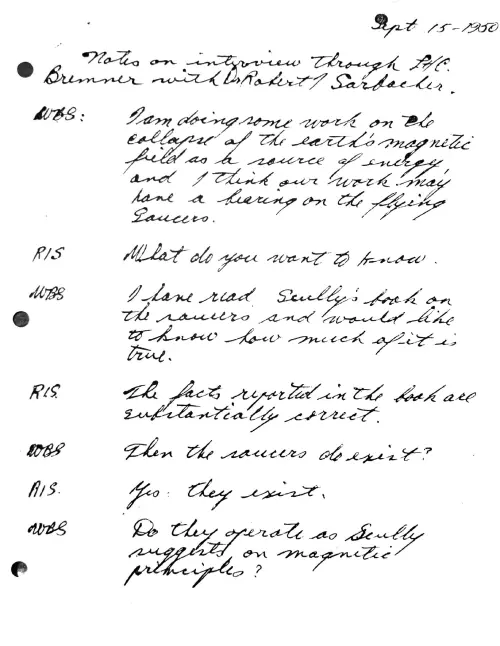 Sept 15-1950
Notes on interview through Lt/C.
Bremner with Dr Robert I Sarbacher.
WBS: I am doing some work on the
collapse of the earth's magnetic
field as a source of energy
and I think our work may
have a bearing on the flying
Saucers.
RIS What do you want to know.
WBS I have read Scully's book on
the saucers and would like
to know how much of it is
true.
RIS. The facts reported in the book are
substantially correct.
WBS Then the saucers do exist?
RIS. Yes: they exist.
WBS Do they operate as Scully
suggests on magnetic
principles?